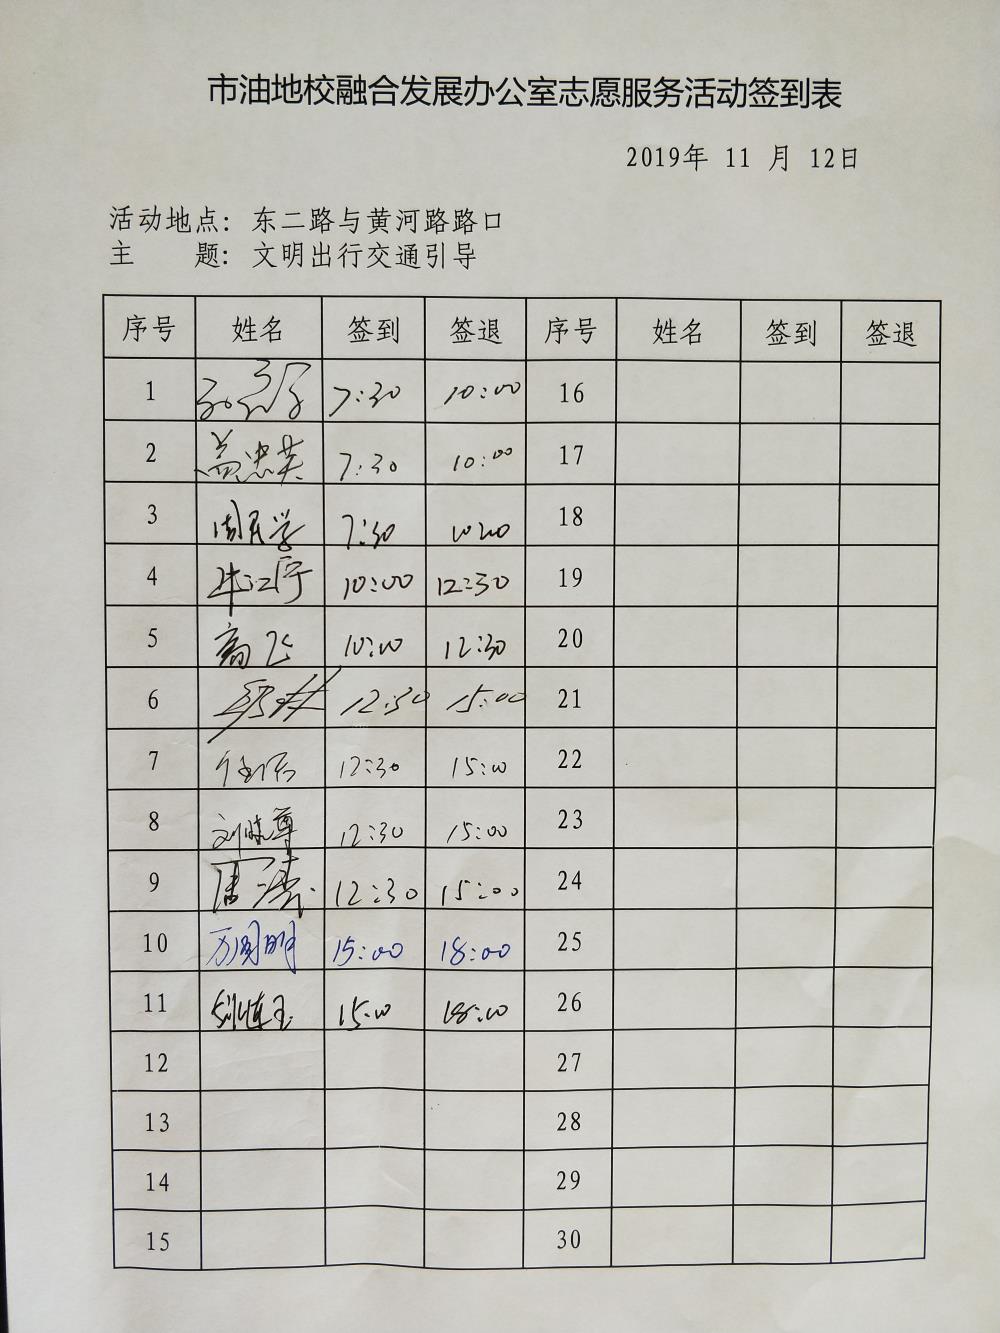 市油地校融合发展办公室志愿服务活动签到表
2019年 11 月 12日
活动地点: 东二路与黄河路路口
主 题: 文明出行交通引导
序号 姓名 签到 签退 序号 姓名 签到 签退
1 7:30 10:00 16
2 盖忠英 7:30 10:00 17
3 周民学 7:30 10:00 18
4 牛江宇 10:00 12:30 19
5 高飞 10:00 12:30 20
6 12:30 15:00 21
7 12:30 15:00 22
8 刘晓尊 12:30 15:00 23
9 12:30 15:00 24
10 万周明 15:00 18:00 25
11 15:00 18:00 26
12 27
13 28
14 29
15 30